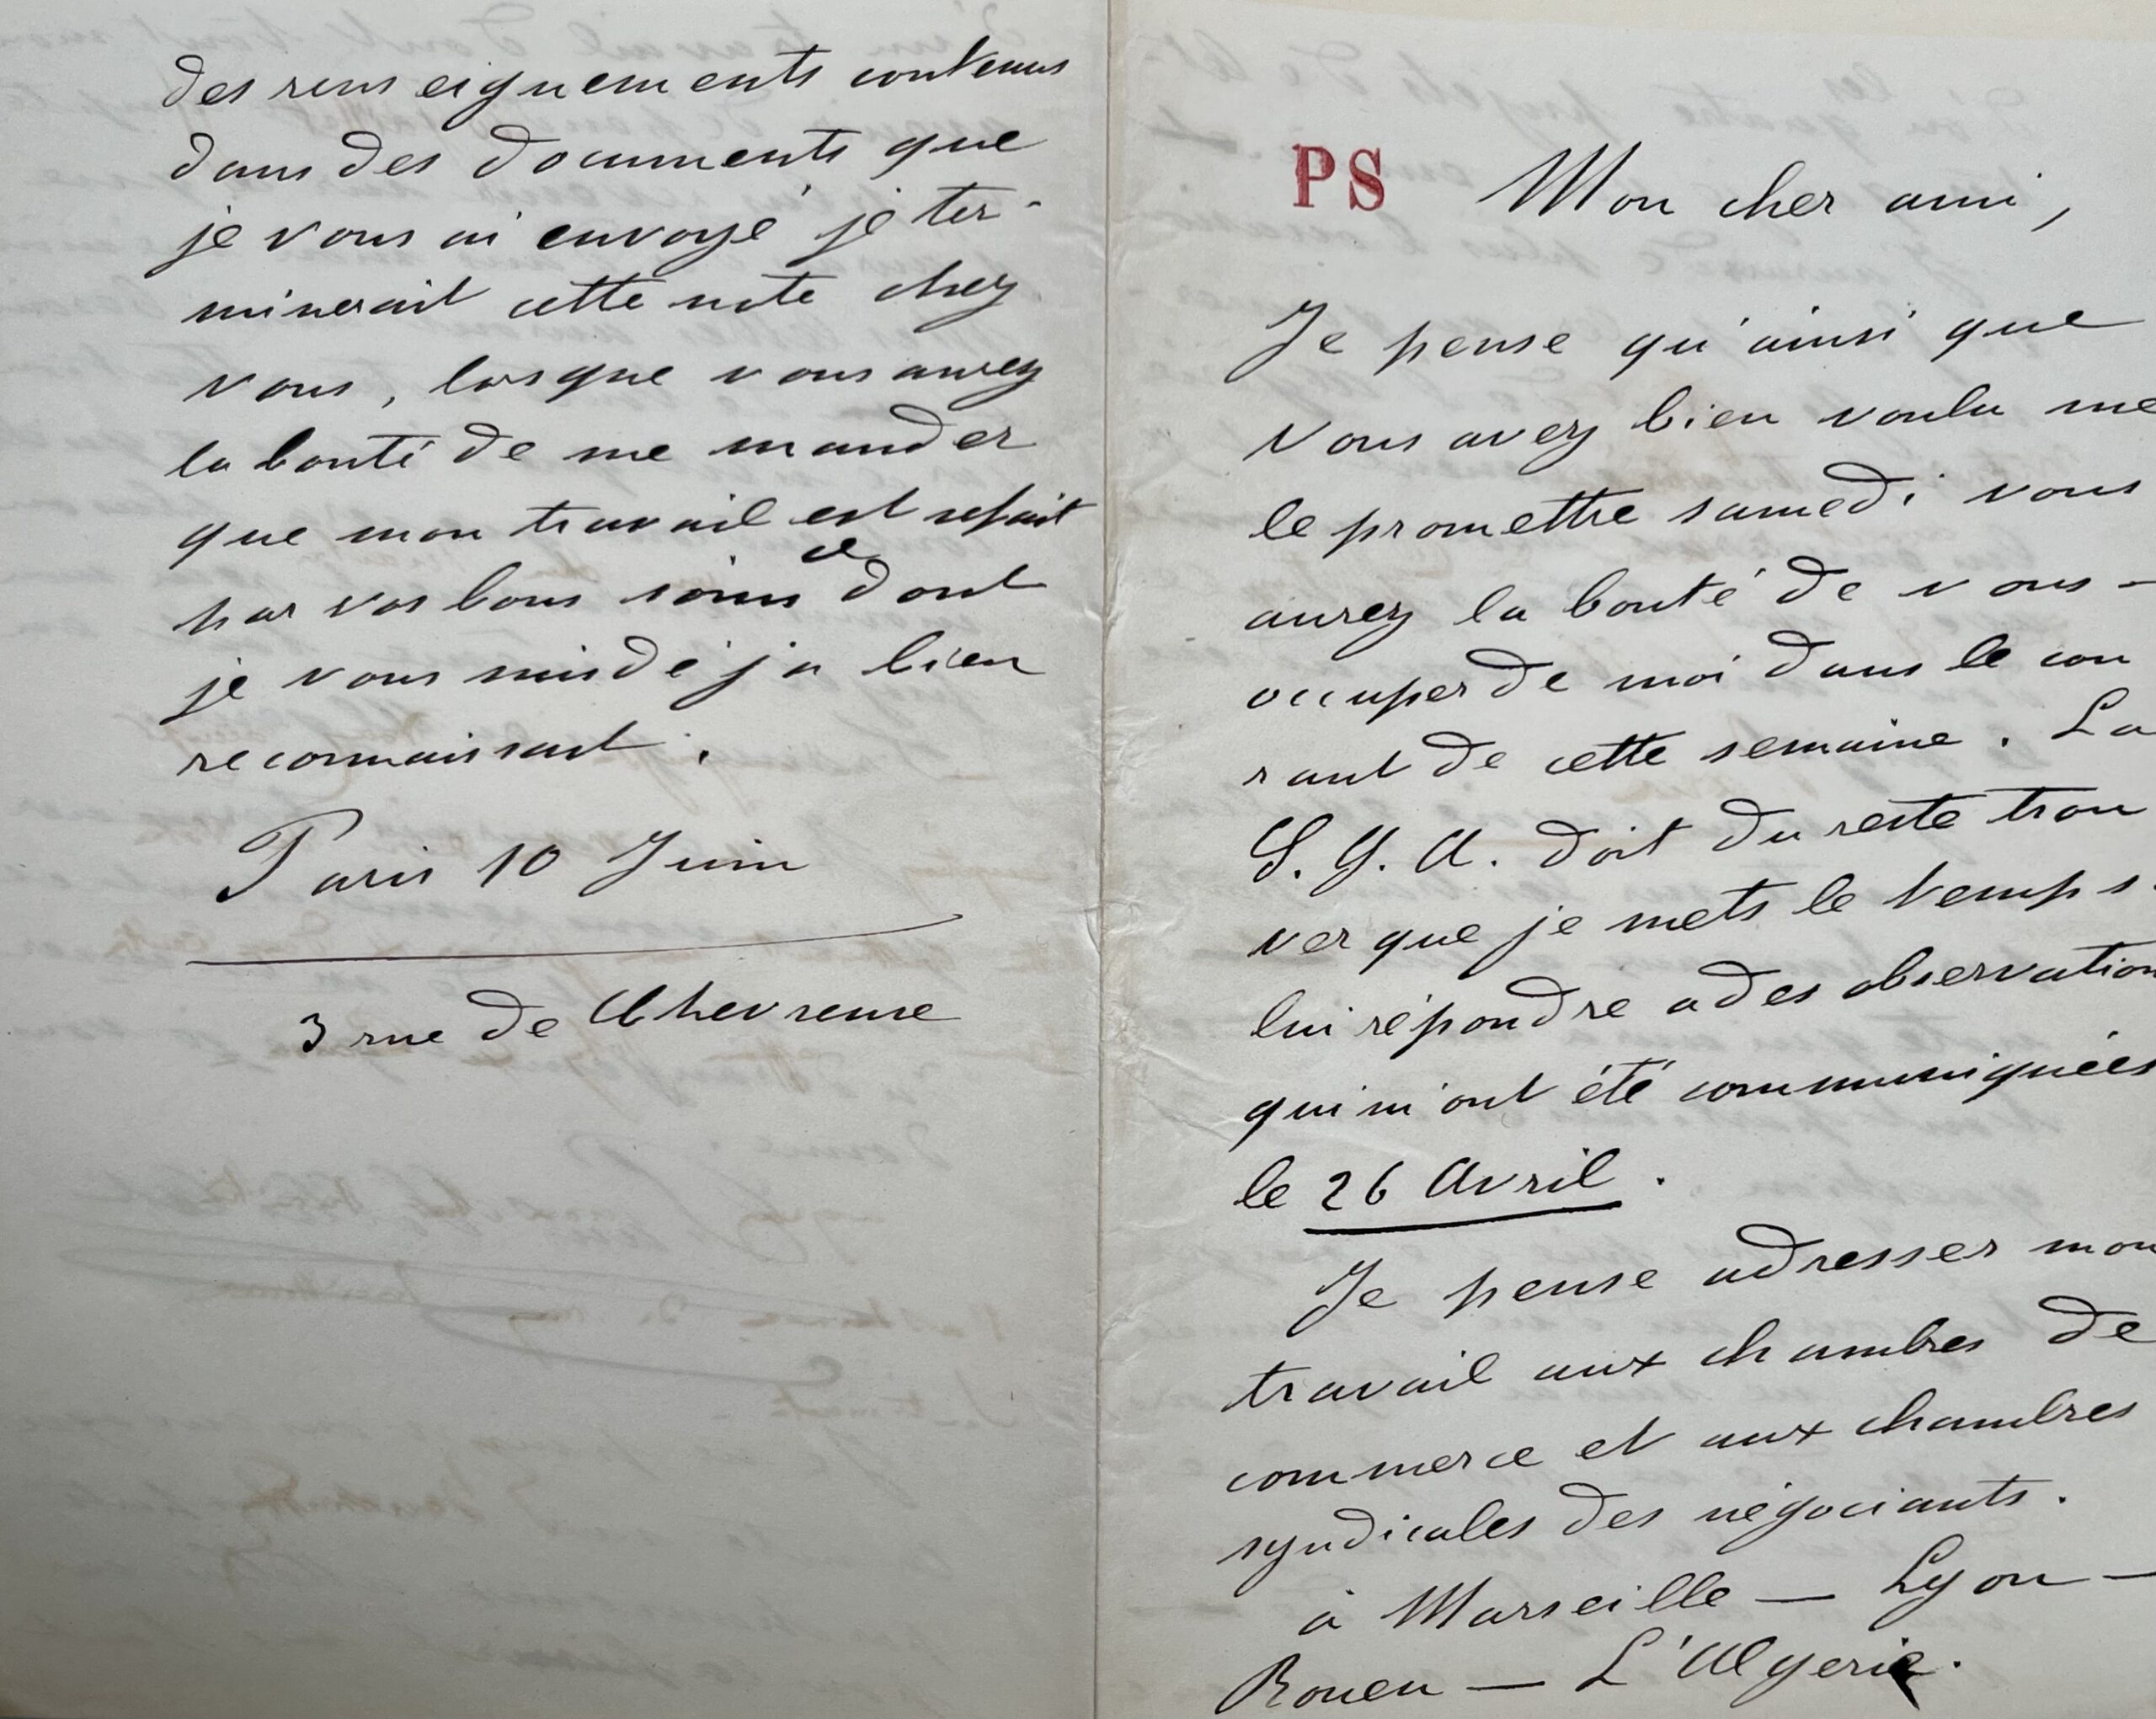 des renseignements contenus
dans des documents que
je vous ai envoyé je ter-
minerait cette note chez
vous, lorsque vous aurez
la bonté de me mander
que mon travail est refait
par vos bons soins ce dont
je vous suis déja bien
reconnaissant.
Paris 10 Juin
3 rue de Chevreuse
PS Mon cher ami,
Je pense qu'ainsi que
vous avez bien voulu me
le promettre samedi vous
aurez la bonté de vous-
occuper de moi dans le cou
rant de cette semaine. La
S. G. A. doit du reste trou
ver que je mets le temps.
lui répondre a des observation
qui m'ont été communiquées
le 26 Avril.
Je pense adresser mon
travail aux chambres de
commerce et aux chambres
syndicales des négociants.
à Marseille — Lyon —
Rouen — L'Algerie.